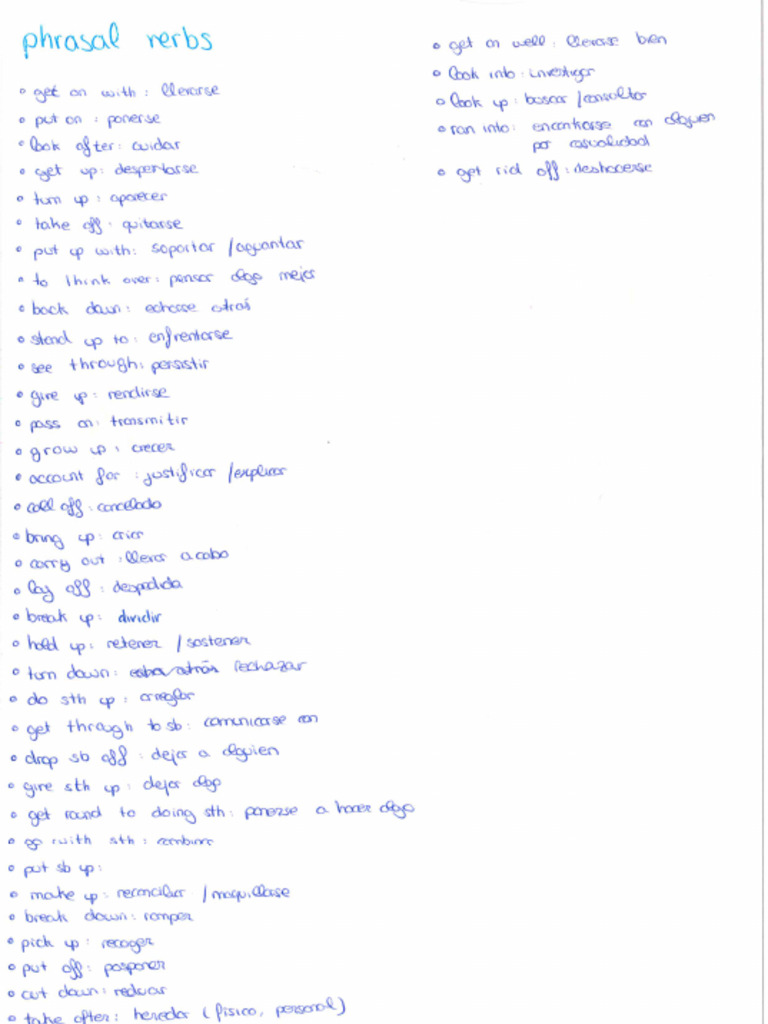 phrasal verbs
• get on with: llevarse
• put on: ponerse
• look after: cuidar
• get up: despertarse
• turn up: aparecer
• take off: quitarse
• put up with: soportar / aguantar
• to think over: pensar algo mejor
• back down: echarse atrás
• stand up to: enfrentarse
• see through: persistir
• give up: rendirse
• pass on: transmitir
• grow up: crecer
• account for: justificar / explicar
• call off: cancelado
• bring up: criar
• carry out: llevar a cabo
• lay off: despedida
• break up: dividir
• hold up: retener / sostener
• turn down: rechazar
• do sth up: arreglar
• get through to sb: comunicarse con
• drop sb off: dejar a alguien
• give sth up: dejar algo
• get round to doing sth: ponerse a hacer algo
• go with sth: combinar
• put sb up:
• make up: reconciliar / maquillarse
• break down: romper
• pick up: recoger
• put off: posponer
• cut down: reducir
• take after: heredar (físico, personal)
• get on well: llevarse bien
• look into: investigar
• look up: buscar / consultar
• ran into: encontrarse con alguien
por casualidad
• get rid off: deshacerse